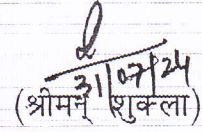 31/07/24
(श्रीमन् शुक्ला)